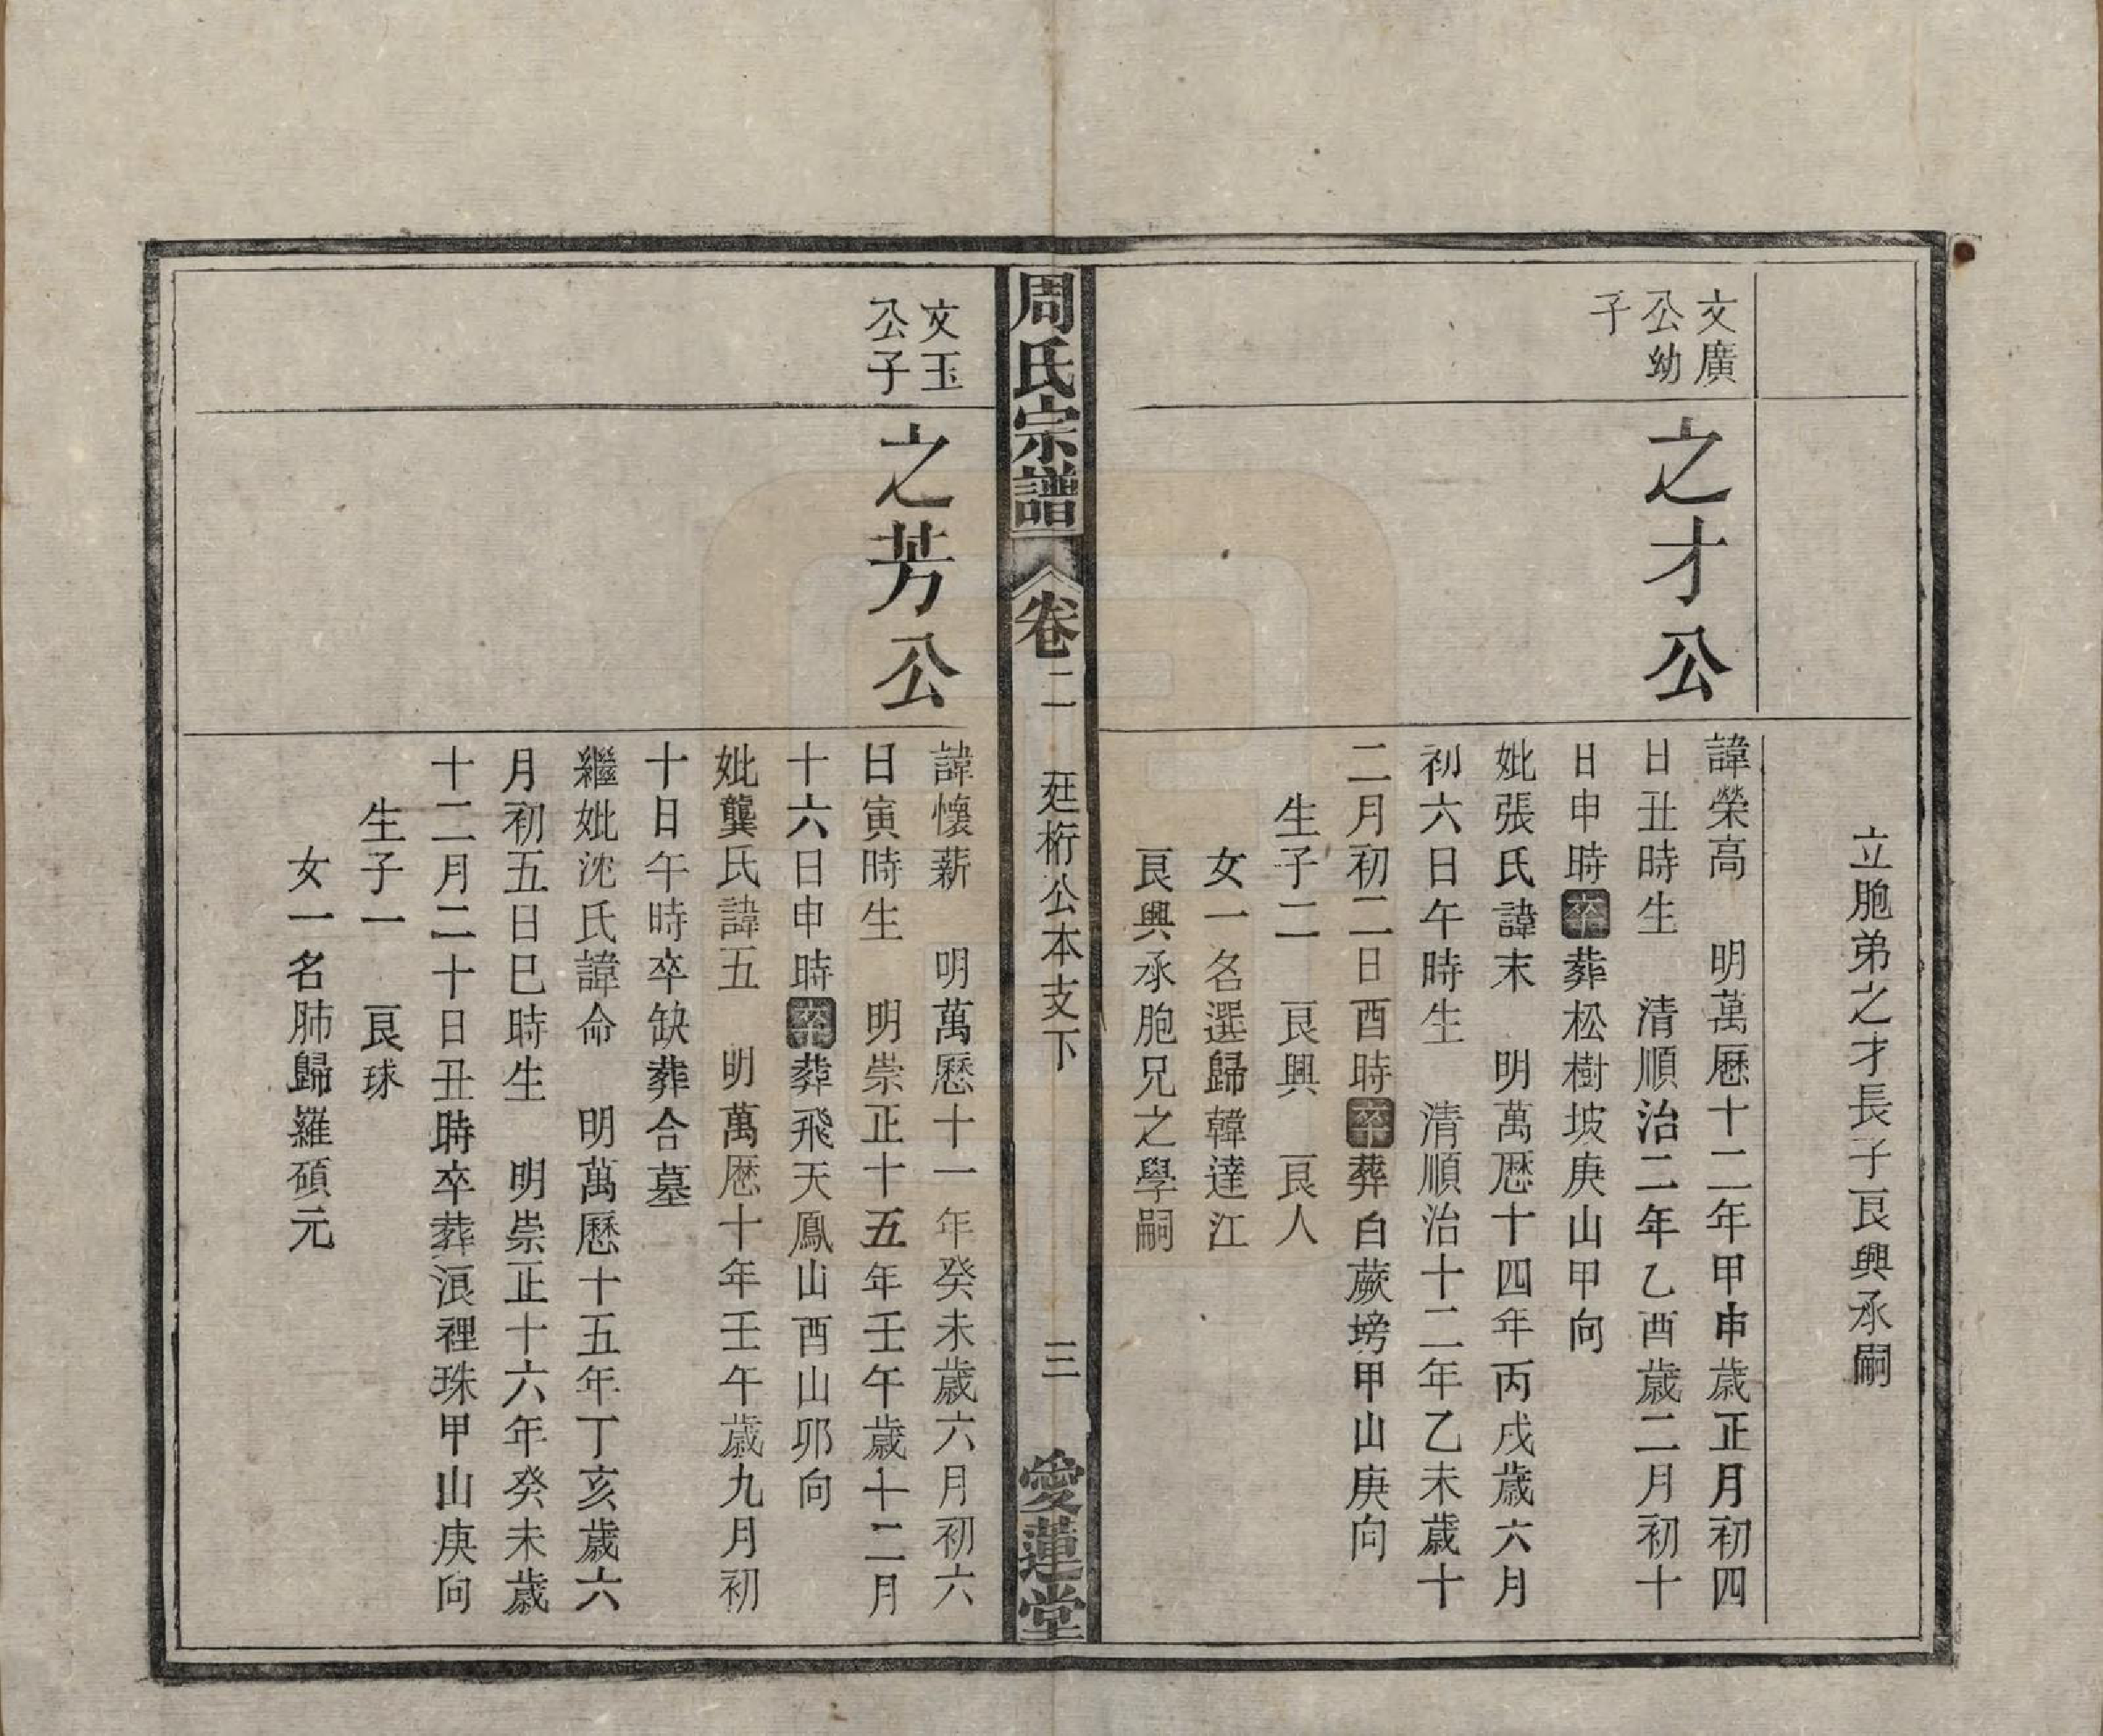 立胞弟之才長子良興承嗣
文廣
公幼
子
之才公
諱榮高　明萬曆十二年甲申歲正月初四
日丑時生　清順治二年乙酉歲二月初十
日申時卒葬松樹坡庚山甲向
妣張氏諱末　明萬厯十四年丙戌歲六月
初六日午時生　清順治十二年乙未歲十
二月初二日酉時卒葬白蕨塝甲山庚向
生子二　良興　良人
女一名選歸韓達江
良興承胞兄之學嗣
周氏宗譜　卷二　廷桁公本支下　三　愛蓮堂
文玉
公子
之芳公
諱懷薪　明萬曆十一年癸未歲六月初六
日寅時生　明崇正十五年壬午歲十二月
十六日申時卒葬飛天鳳山酉山卯向
妣龔氏諱五　明萬厯十年壬午歲九月初
十日午時卒缺葬合墓
繼妣沈氏諱命　明萬曆十五年丁亥歲六
月初五日巳時生　明崇正十六年癸未歲
十二月二十日丑時卒葬滾裡珠甲山庚向
生子一　良球
女一名肺歸羅碩元